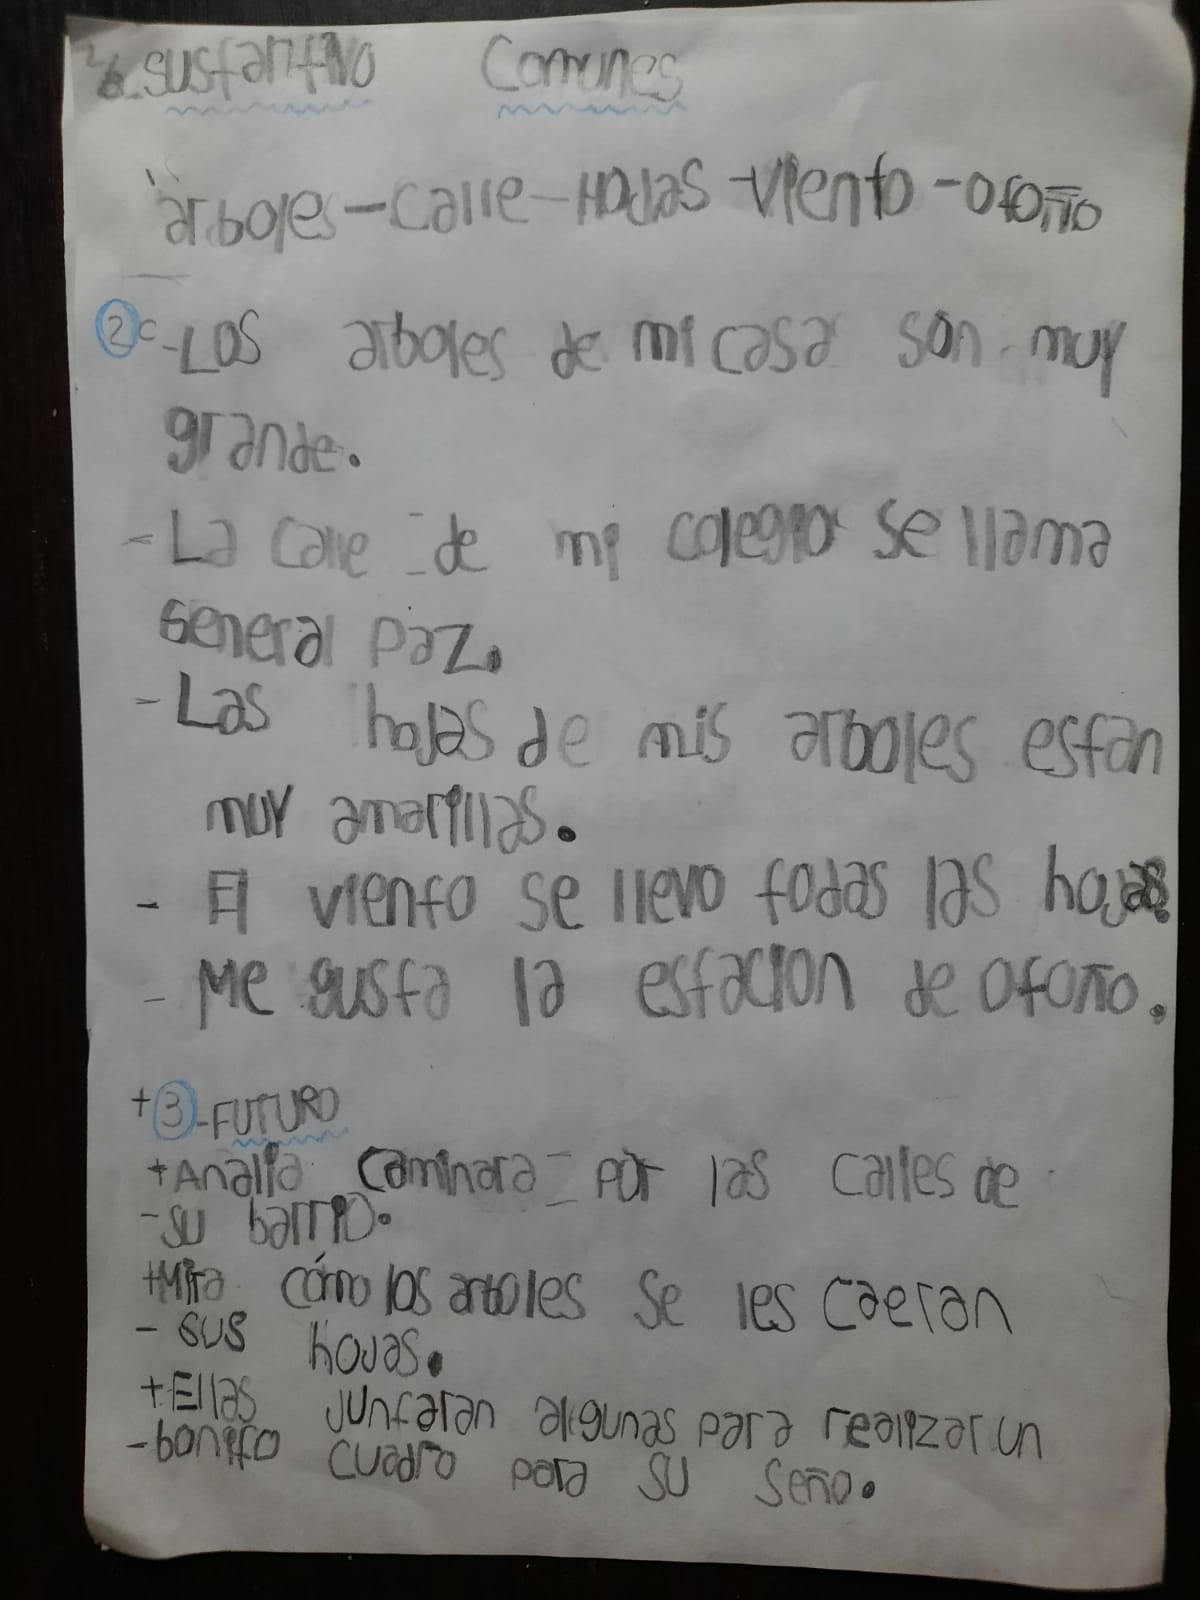 2b_sustantivo Comunes
arboles-calle-Hojas-viento-otoño
2c-Los arboles de mi casa son muy
grande.
-La calle de mi colegio se llama
General Paz.
-Las hojas de mis arboles estan
muy amarillas.
- El viento se llevo todas las hojas.
- Me gusta la estacion de otoño.
+3-FUTURO
+Analia caminara por las calles de
-su barrio.
+Mira cómo los arboles se les caeran
- sus hojas.
+Ellas juntaran algunas para realizar un
-bonito cuadro para su seño.